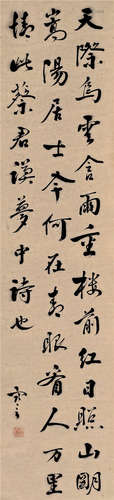 天際烏雲含雨重樓前紅日照山明
嵩陽居士今何在青眼看人万里
情此蔡君謨夢中詩也